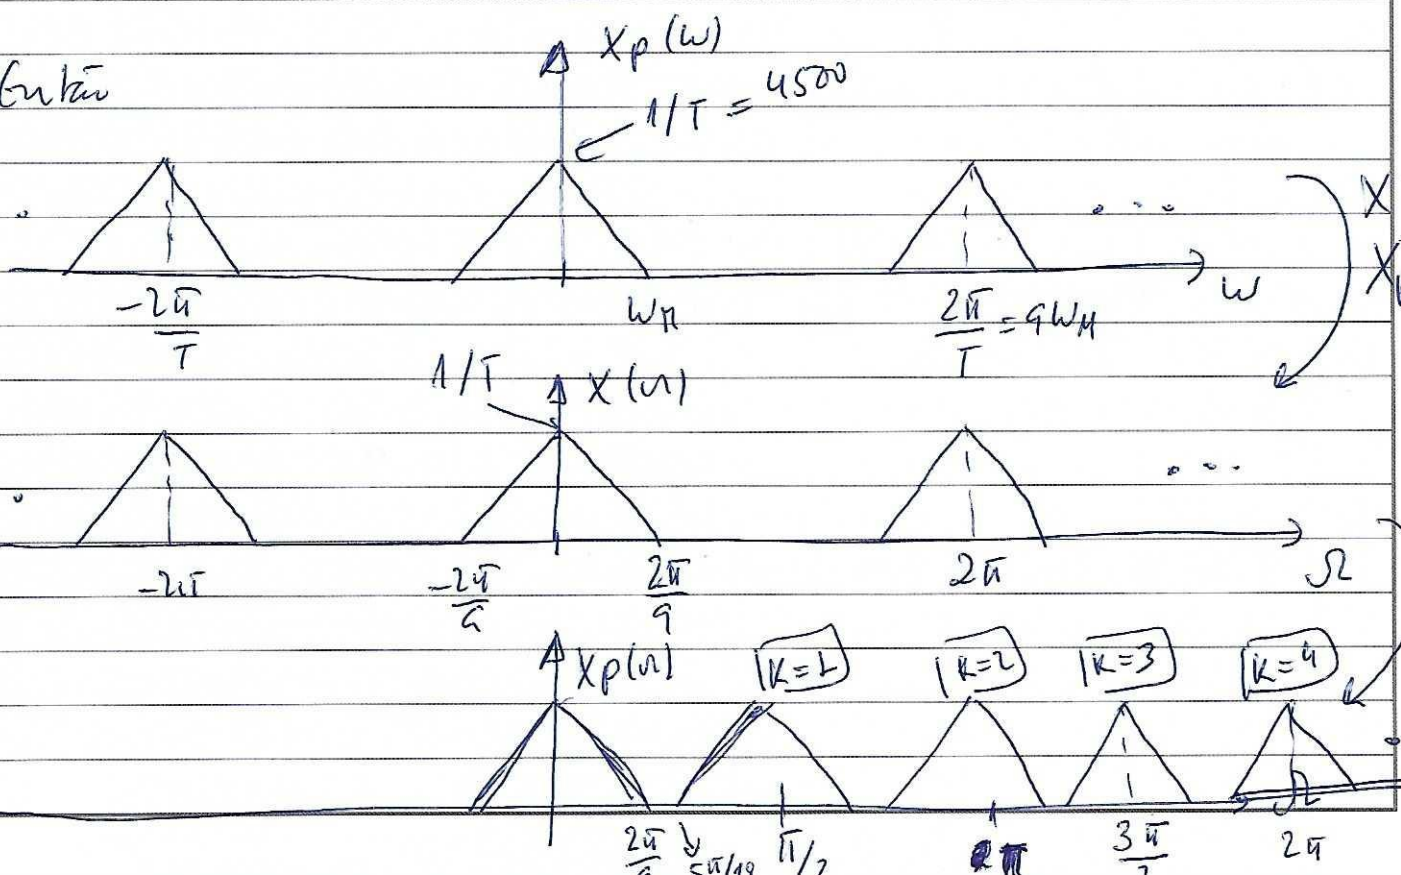 Então
Xp(ω)
1/T = 4500
...
X
-2π/T
ωM
2π/T = 9ωM
ω
1/T
X(Ω)
...
-2π
-2π/9
2π/9
2π
Ω
Xp(Ω)
K=1
K=2
K=3
K=4
2π/9
5π/18
π/2
π
3π/2
2π
Ω